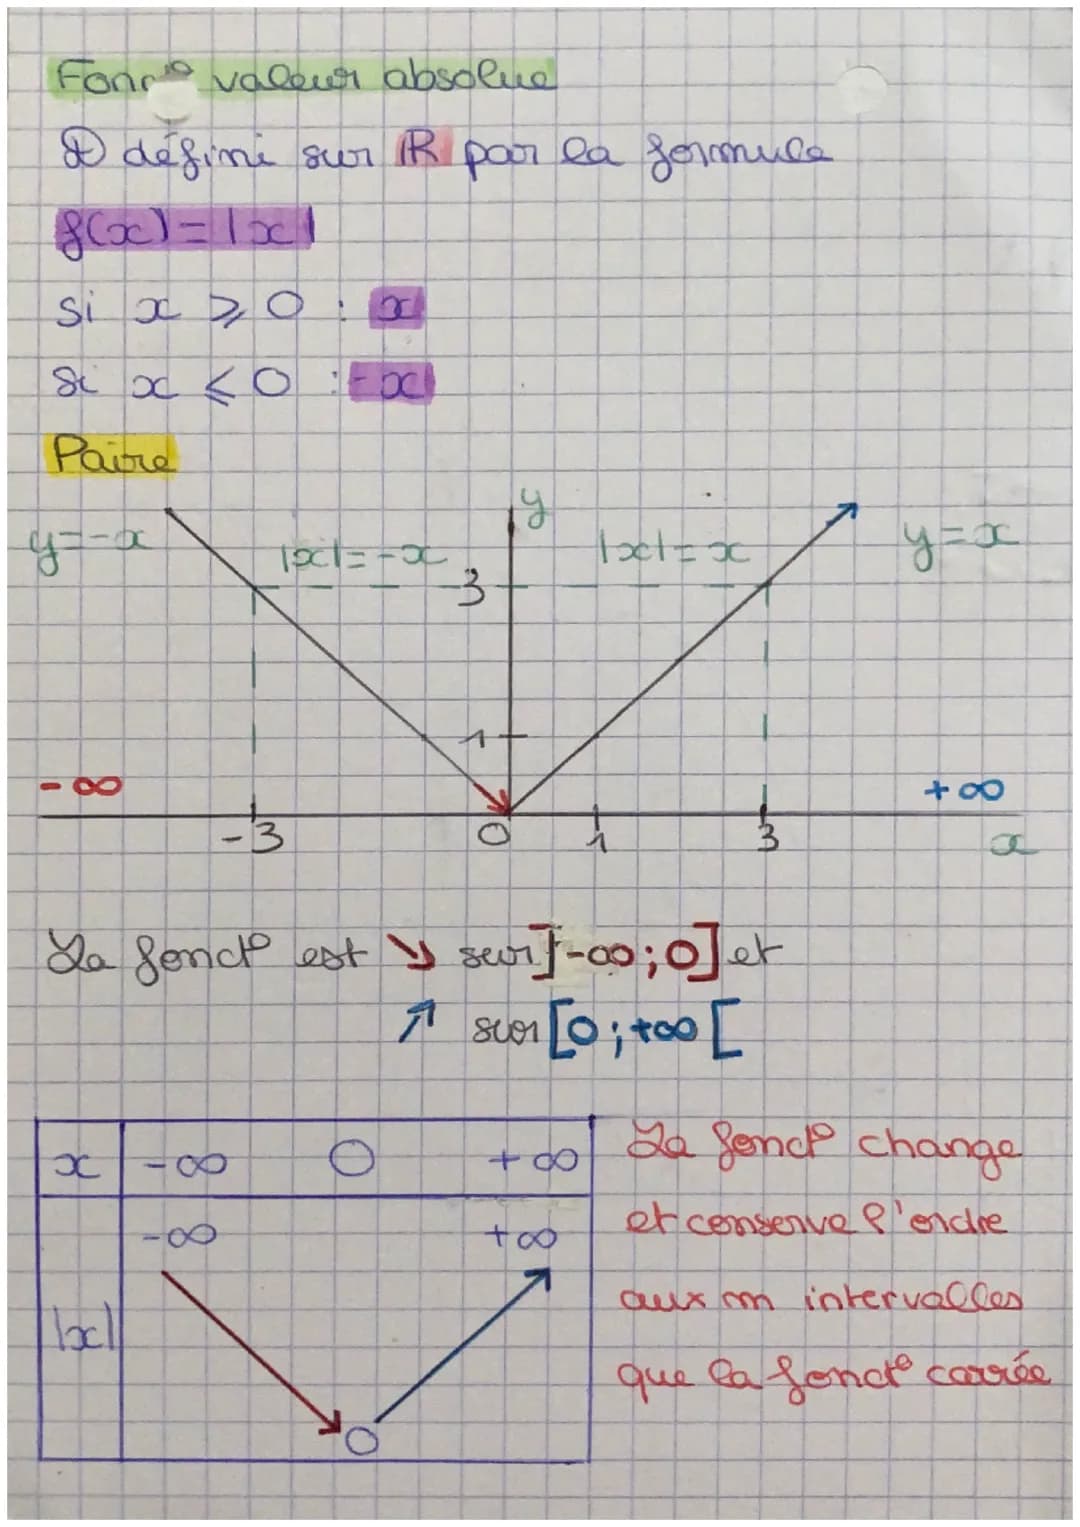 Fonc° valeur absolue
défini sur ℝ par la formule
f(x) = |x|
si x ⩾ 0 : x
si x ⩽ 0 : -x
Paire
y
y=-x |x|=-x |x|=x y=x
3
1
-∞ +∞
-3 0 1 3 x
La fonct° est ↘ sur ]-∞;0] et
↗ sur [0;+∞[
x -∞ 0 +∞
-∞ +∞
|x|
0
La fonct° change
et conserve l'ordre
aux m intervalles
que la fonct° carrée